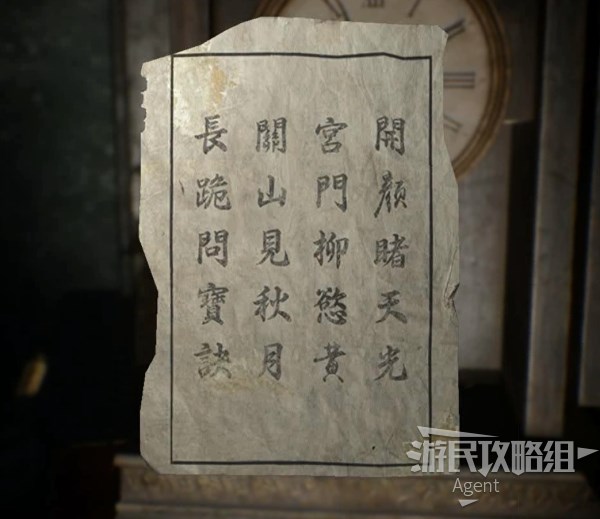 開顏睹天光
宮門柳慾黃
關山見秋月
長跪問寶訣
游民攻略组
Agent